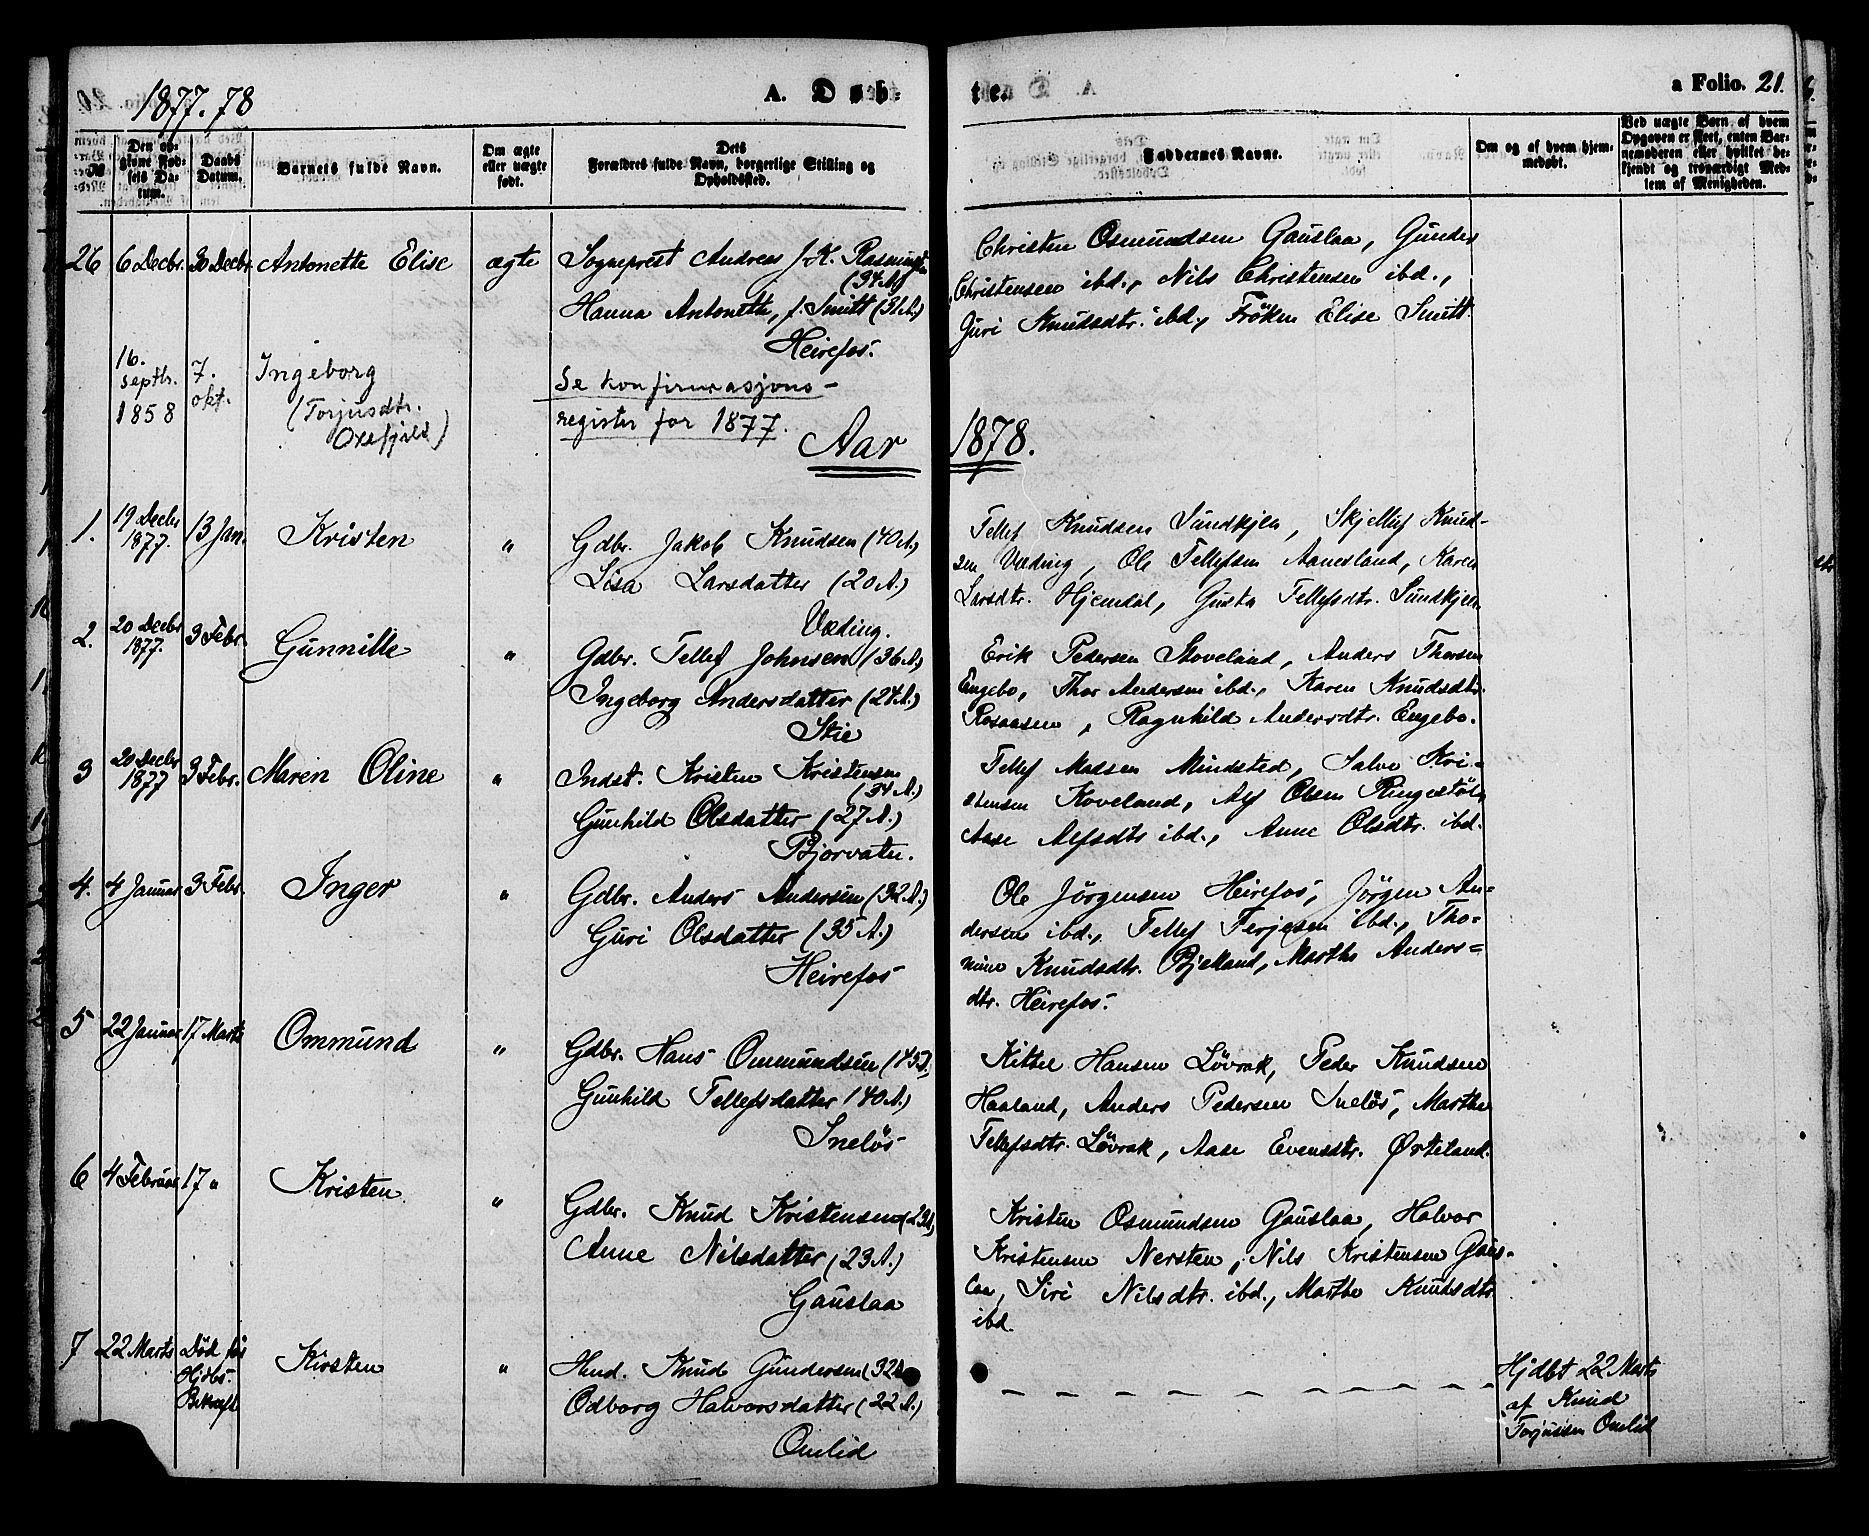 1877.78
A. Døb-
te.
a Folio. 21.
№
Den opgivne Fødsels Datum.
Daabs Datum.
Barnets fulde Navn.
Om ægte eller uægte født.
Dets Forældres fulde Navn, borgerlige Stilling og Opholdssted.
Faddernes Navne.
Om og af hvem hjemmedøbt.
Ved uægte Børn af hvem Opgaven er skeet, enten Barnemoderen eller hvilket bekjendt og troværdigt Medlem af Menigheden.
26 6 Decbr. 30 Decbr. Antonette Elise ægte Sogneprest Andreas J. K. Rasmussen
(34 A)
Hanna Antonette, f. Smitt (31 A.)
Heirefos.
Christen Osmundsen Gauslaa, Gunder
Christensen ibd., Nils Christensen ibd.,
Guri Knudsdtr. ibd., Fröken Elise Smitt.
16. septbr. 1858
7. okt.
Ingeborg
(Torjusdtr.
Oxefjeld)
Se konfirmasjons-
register for 1877.
Aar 1878.
1. 19 Decbr 1877. 13 Jan. Kristen " Gdbr. Jakob Knudsen (40 A.)
Lisa Larsdatter (20 A.)
Væding.
Tellef Knudsen Sundkjen, Skjelluf Knud-
sen Væding, Ole Tellefsen Aanesland, Karen
Larsdtr. Hjemdal, Gusta Tellefsdtr. Sundkjen.
2. 20 Decbr 1877. 3 Febr. Gunnille " Gdbr. Tellef Johnsen (36 A.)
Ingeborg Andersdatter (24 A.)
Skie
Erik Pedersen Stoveland, Anders Thorsen
Engebo, Thor Andersen ibd., Karen Knudsdtr.
Rosaasen, Ragnhild Andersdtr. Engebo.
3 20 Decbr 1877 3 Febr. Maren Oline " Indst. Kristen Kristensen
(34 A.)
Gunhild Olsdatter (27 A.)
Bjorvatn.
Tellef Madsen Mindsted, Salve Kri-
stensen Koveland, Alf Olsen Ringestöl,
Aase Alfsdtr ibd., Anne Olsdtr. ibd.
4. 4 Januar 3 Febr. Inger " Gdbr. Anders Andersen (32 A.)
Guri Olsdatter (35 A.)
Heirefos
Ole Jörgensen Heirefos, Jörgen An-
dersen ibd., Tellef Terjesen ibd., Tho-
mine Knudsdtr. Bjelland, Marthe Anders-
dtr. Heirefos.
5 22 Januar 17 Marts Ommund " Gdbr. Hans Ommundsen (45 A.)
Gunhild Tellefsdatter (40 A.)
Ineløs
Kittel Hansen Lövrak, Peder Knudsen
Haaland, Anders Pedersen Inelös, Marthe
Tellefsdtr. Lövrak, Aase Evensdtr. Ørteland.
6 4 Februar 17 " Kristen " Gdbr. Knud Kristensen
Anne Nilsdatter (23 A.)
Gauslaa
Kristen Osmundsen Gauslaa, Halvor
Kristensen Nersten, Nils Kristensen Gaus-
laa, Siri Nilsdtr. ibd., Marthe Knudsdtr
ibd.
7 22 Marts Død før Hjdbs. Bekræft Kirsten " Hmd. Knud Gundersen (32 A.)
Odborg Halvorsdatter (22 A.)
Omlid
Hjdbt 22 Marts
af Knud
Torjussen Omlid